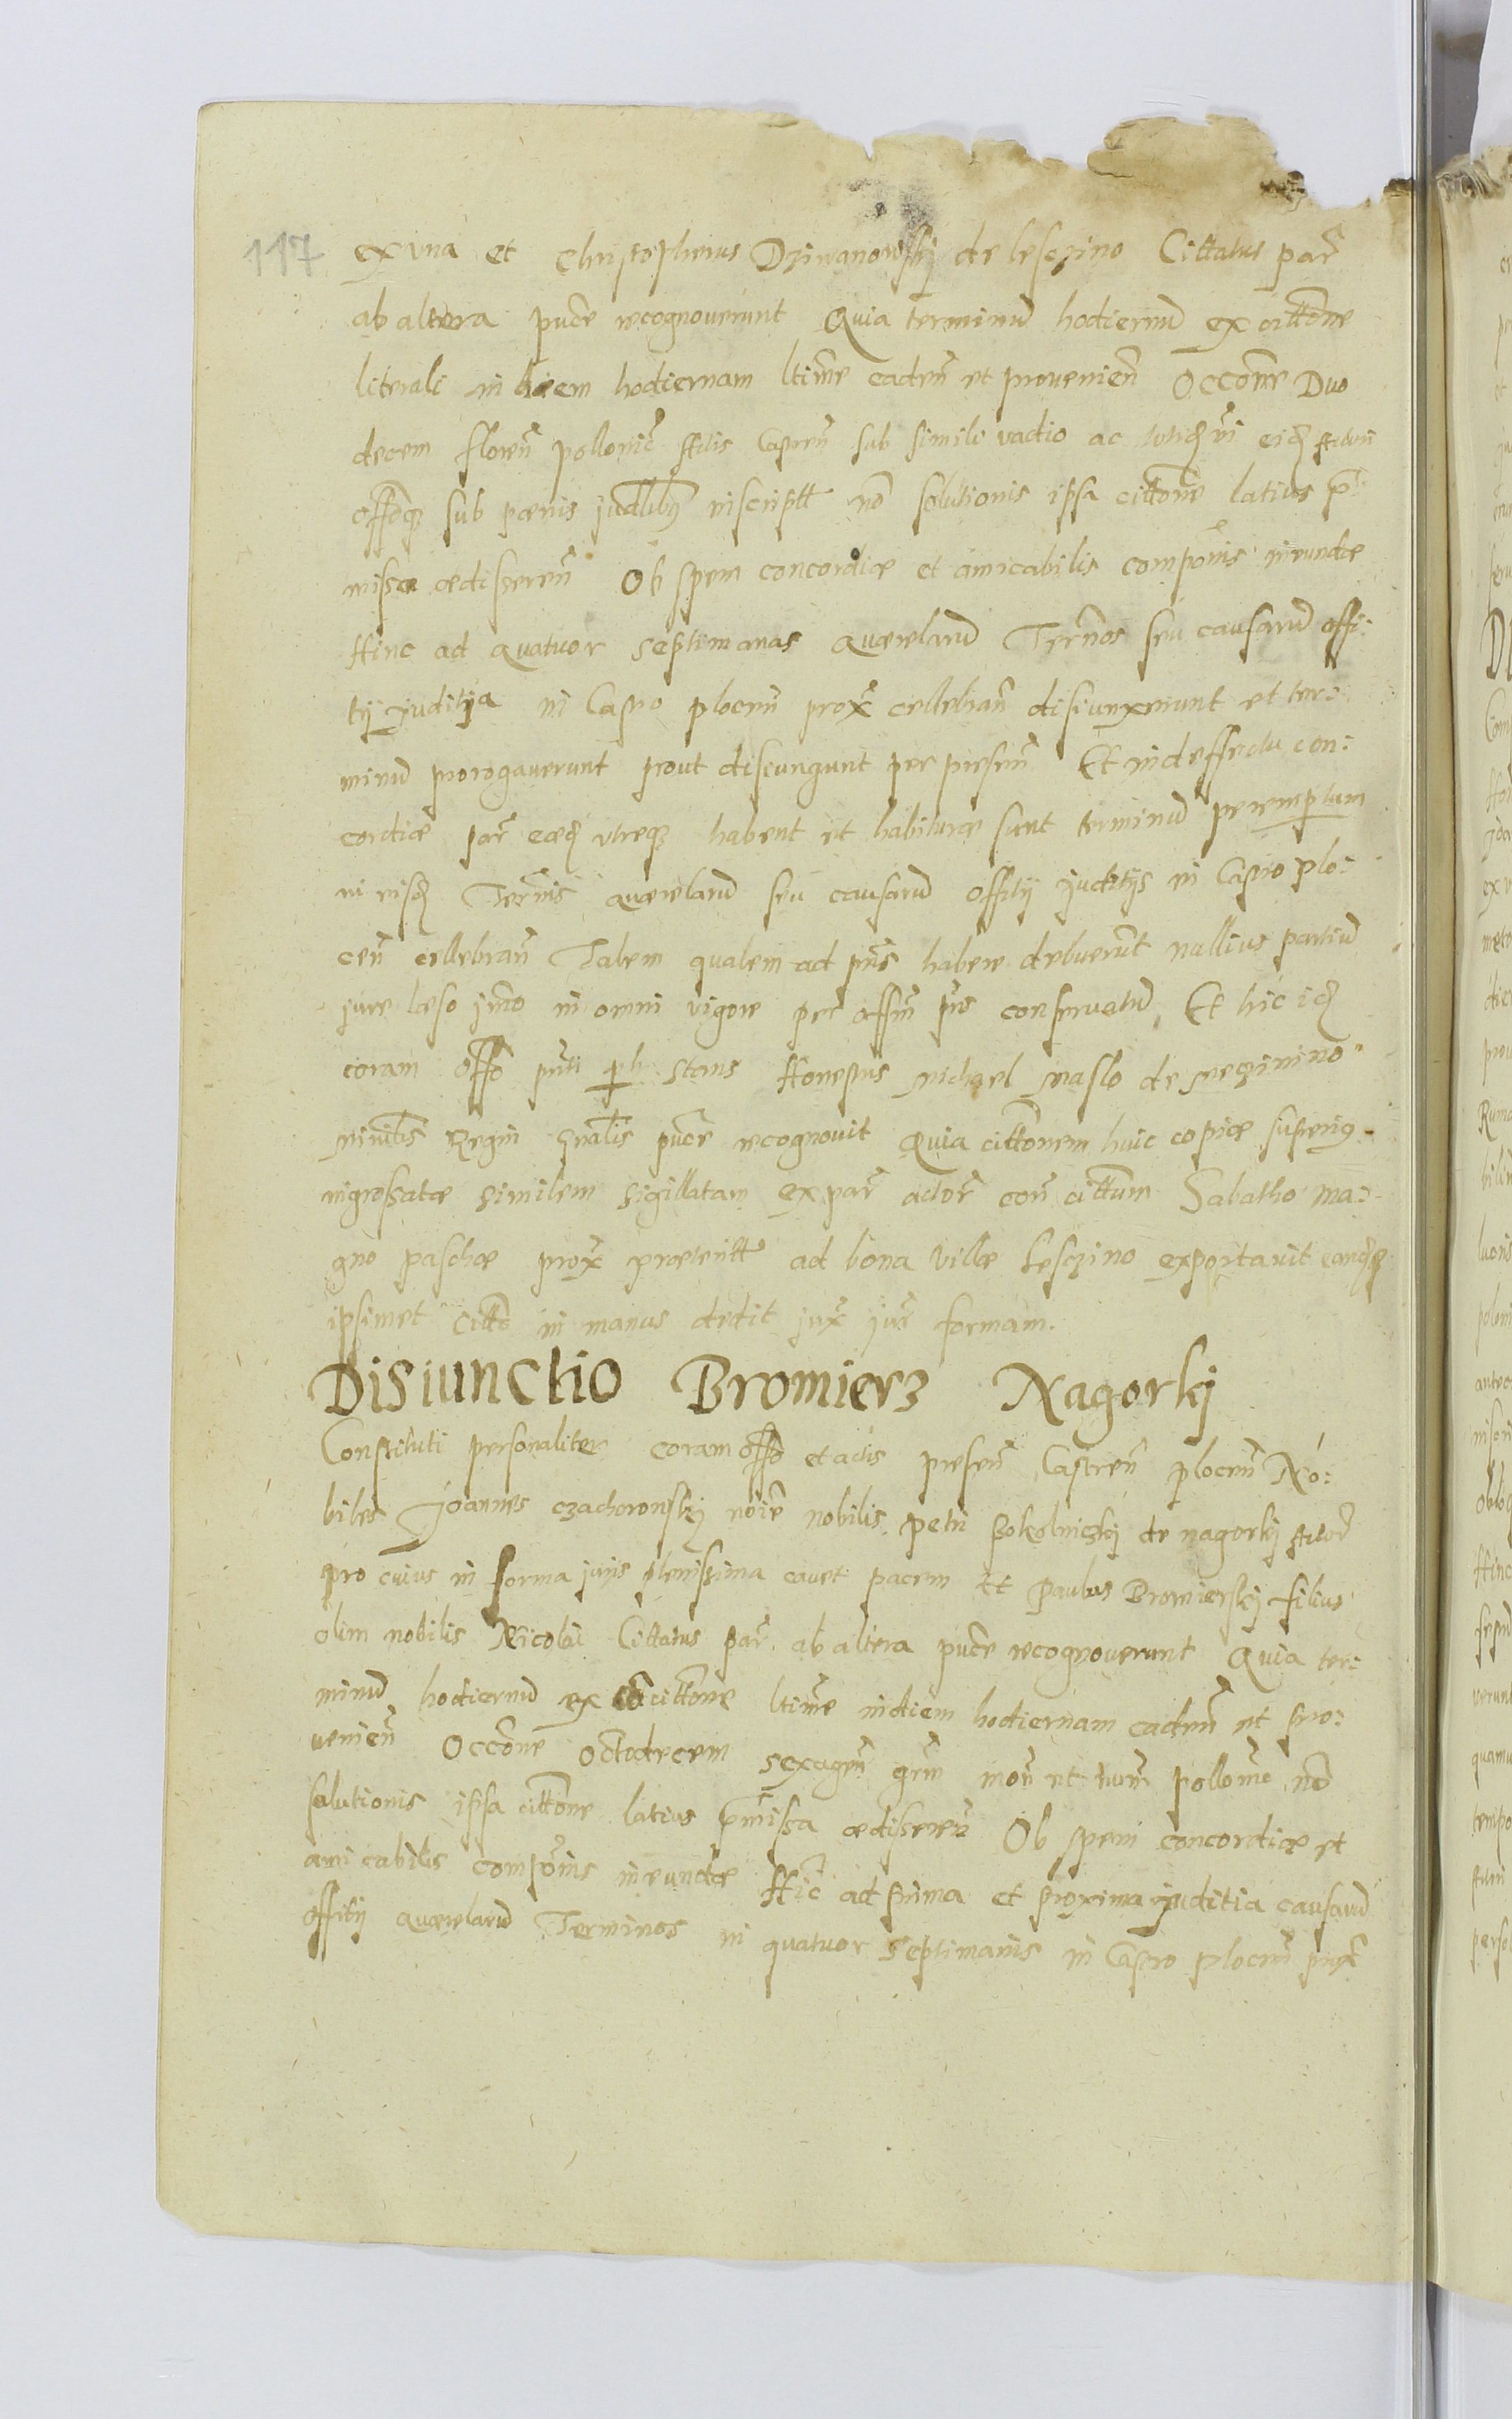 117 ex vna et Christopherus Dziwanowskij de lesczino Cittatus par
ab altera puce recognouerunt Quia terminu hodiernu ex cittone
literali in diem hodiernam ltime caden et prouenien Occone Duo
decem floren pollonic sub simili vadio ac
offoq sub poenis judlibq inscriptt no solutionis ipsa cittone latius p:
missa ædisseren Ob spem concordiæ et amicabilis componis ineundæ
Hinc ad quatuor septimanas quærelaru Termos seu causaru offi:
tij juditija in Castro plocen prox cellebran disiunxerunt et ter:
minu prorogauerunt prout disiungunt per presen Et in deffectu con:
cordiæ par eæd vtreq habent et habituræ sunt terminu peremptum
in eisd Termis quærelaru seu causaru offitij juditijs in Castro plo:
cen cellebran Talem qualem ad pns habere debuerunt nullius partiu
jure læso jmo in omni vigore per offm pns conseruatu Et hic id
coram offo pnti stans Honestus Michael Maslo de
Minilis Regni gnalis puce recognouit Quia cittonem huic copiæ superiq
ingrossatæ similem sigillatam ex par actor con cittum Sabatho ma:
gno paschæ prox præteritt ad bona villæ Lesczino exportauit eandq
ipsimet citto in manus dedit jux jus formam.
Disiunctio Bromiers Nagorkj
Constituti personaliter coram offo et actis presen Castren plocen No:
biles Joannes czachorowskj noie nobilis petri Sokolniczkj de nagorkj actor
pro cuius in forma jurjs plenissima cauet pacem Et Paulus Bromierskj filius
olim nobilis Nicolai Cittatus par ab altera puce recognouerunt Quia ter:
minu hodiernu ex cittone ltime in diem hodiernam caden et pro:
uenien Occone Octodecem sexagen grm mon et num pollonic no
solutionis ipsa cittone latius pmissa ædisseren Ob spem concordiæ et
amicabilis componis ineundæ Hic ad prima et proxima juditia causaru
offitij quærelaru Terminos in quatuor septimanis in Castro plocen prox